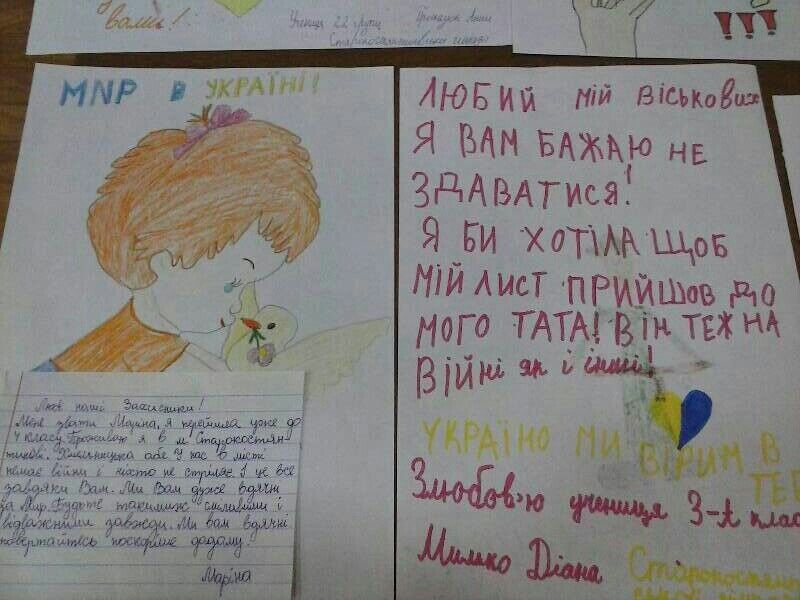 вами!
Учениця 22 групи
!!!
МИР В УКРАЇНІ!
Любі наші Захисники!
Мене звати Маріна, я перейшла уже до
4 класу. Проживаю я в м. Старокостян-
тинові. Хмельницька обл. У нас в місті
немає війни і ніхто не стріляє. І це все
завдяки Вам. Ми Вам дуже вдячні
за Мир. Будьте такими ж сміливими і
відважними завжди. Ми вам вдячні
повертайтесь поскоріше додому.
Маріна
ЛЮБИЙ мій Військовий
Я ВАМ БАЖАЮ НЕ
ЗДАВАТИСЯ!
Я БИ ХОТІЛА ЩОБ
МІЙ ЛИСТ ПРИЙШОВ ДО
МОГО ТАТА! ВІН ТЕЖ НА
ВІЙНІ як і інші!
УКРАЇНО МИ ВІРИМ В
ТЕБ
Злюбов'ю учениця 3-А клас
Мишко Діана